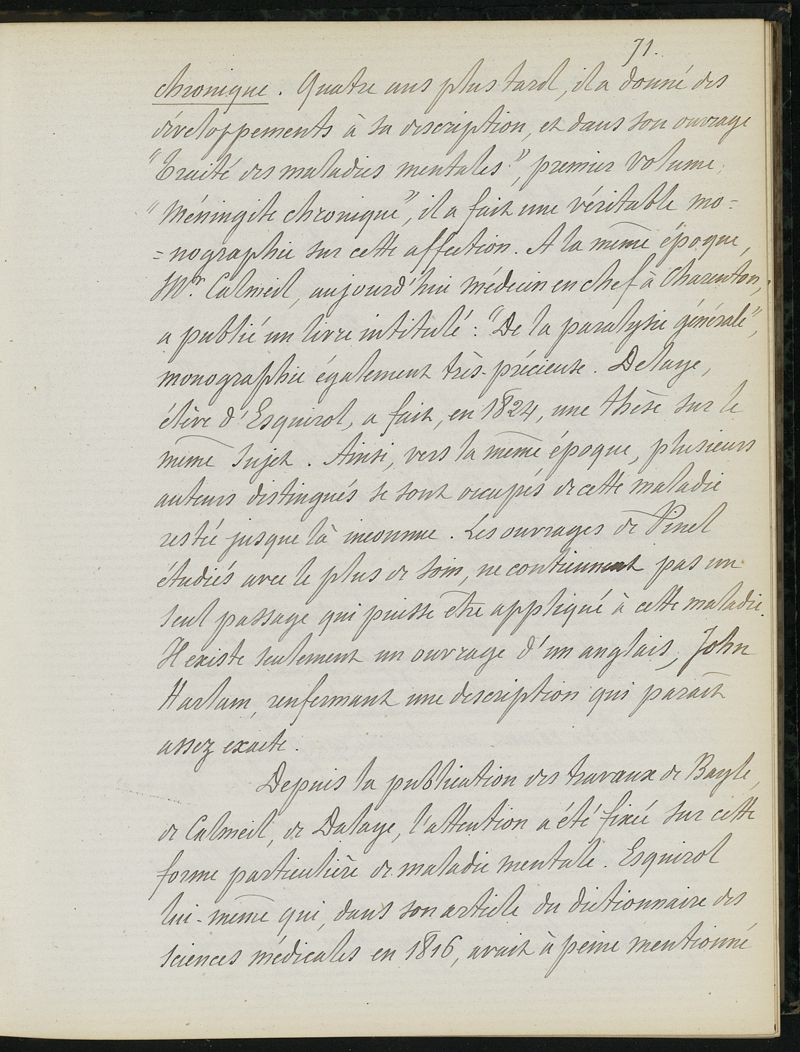 71.
chronique. Quatre ans plus tard, il a donné des
développements à sa description, et dans son ouvrage
"Traité des maladies mentales", premier volume,
"Méningite chronique", il a fait une véritable mo=
=nographie sur cette affection. A la même époque,
Mr. Calmeil, aujourd'hui médecin en chef à Charenton,
a publié un livre intitulé: "De la paralysie générale",
monographie également très-précieuse. Delaye,
élève d'Esquirol, a fait, en 1824, une thèse sur le
même sujet. Ainsi, vers la même époque, plusieurs
auteurs distingués se sont occupés de cette maladie
restée jusque là inconnue. Les ouvrages de Pinel
étudiés avec le plus de soin, ne contiennent pas un
seul passage qui puisse être appliqué à cette maladie.
Il existe seulement un ouvrage d'un anglais, John
Harlam, renfermant une description qui paraît
assez exacte.
Depuis la publication des travaux de Bayle,
de Calmeil, de Dalaye, l'attention a été fixée sur cette
forme particulière de maladie mentale. Esquirol
lui-même qui, dans son article du dictionnaire des
sciences médicales en 1816, avait à peine mentionné